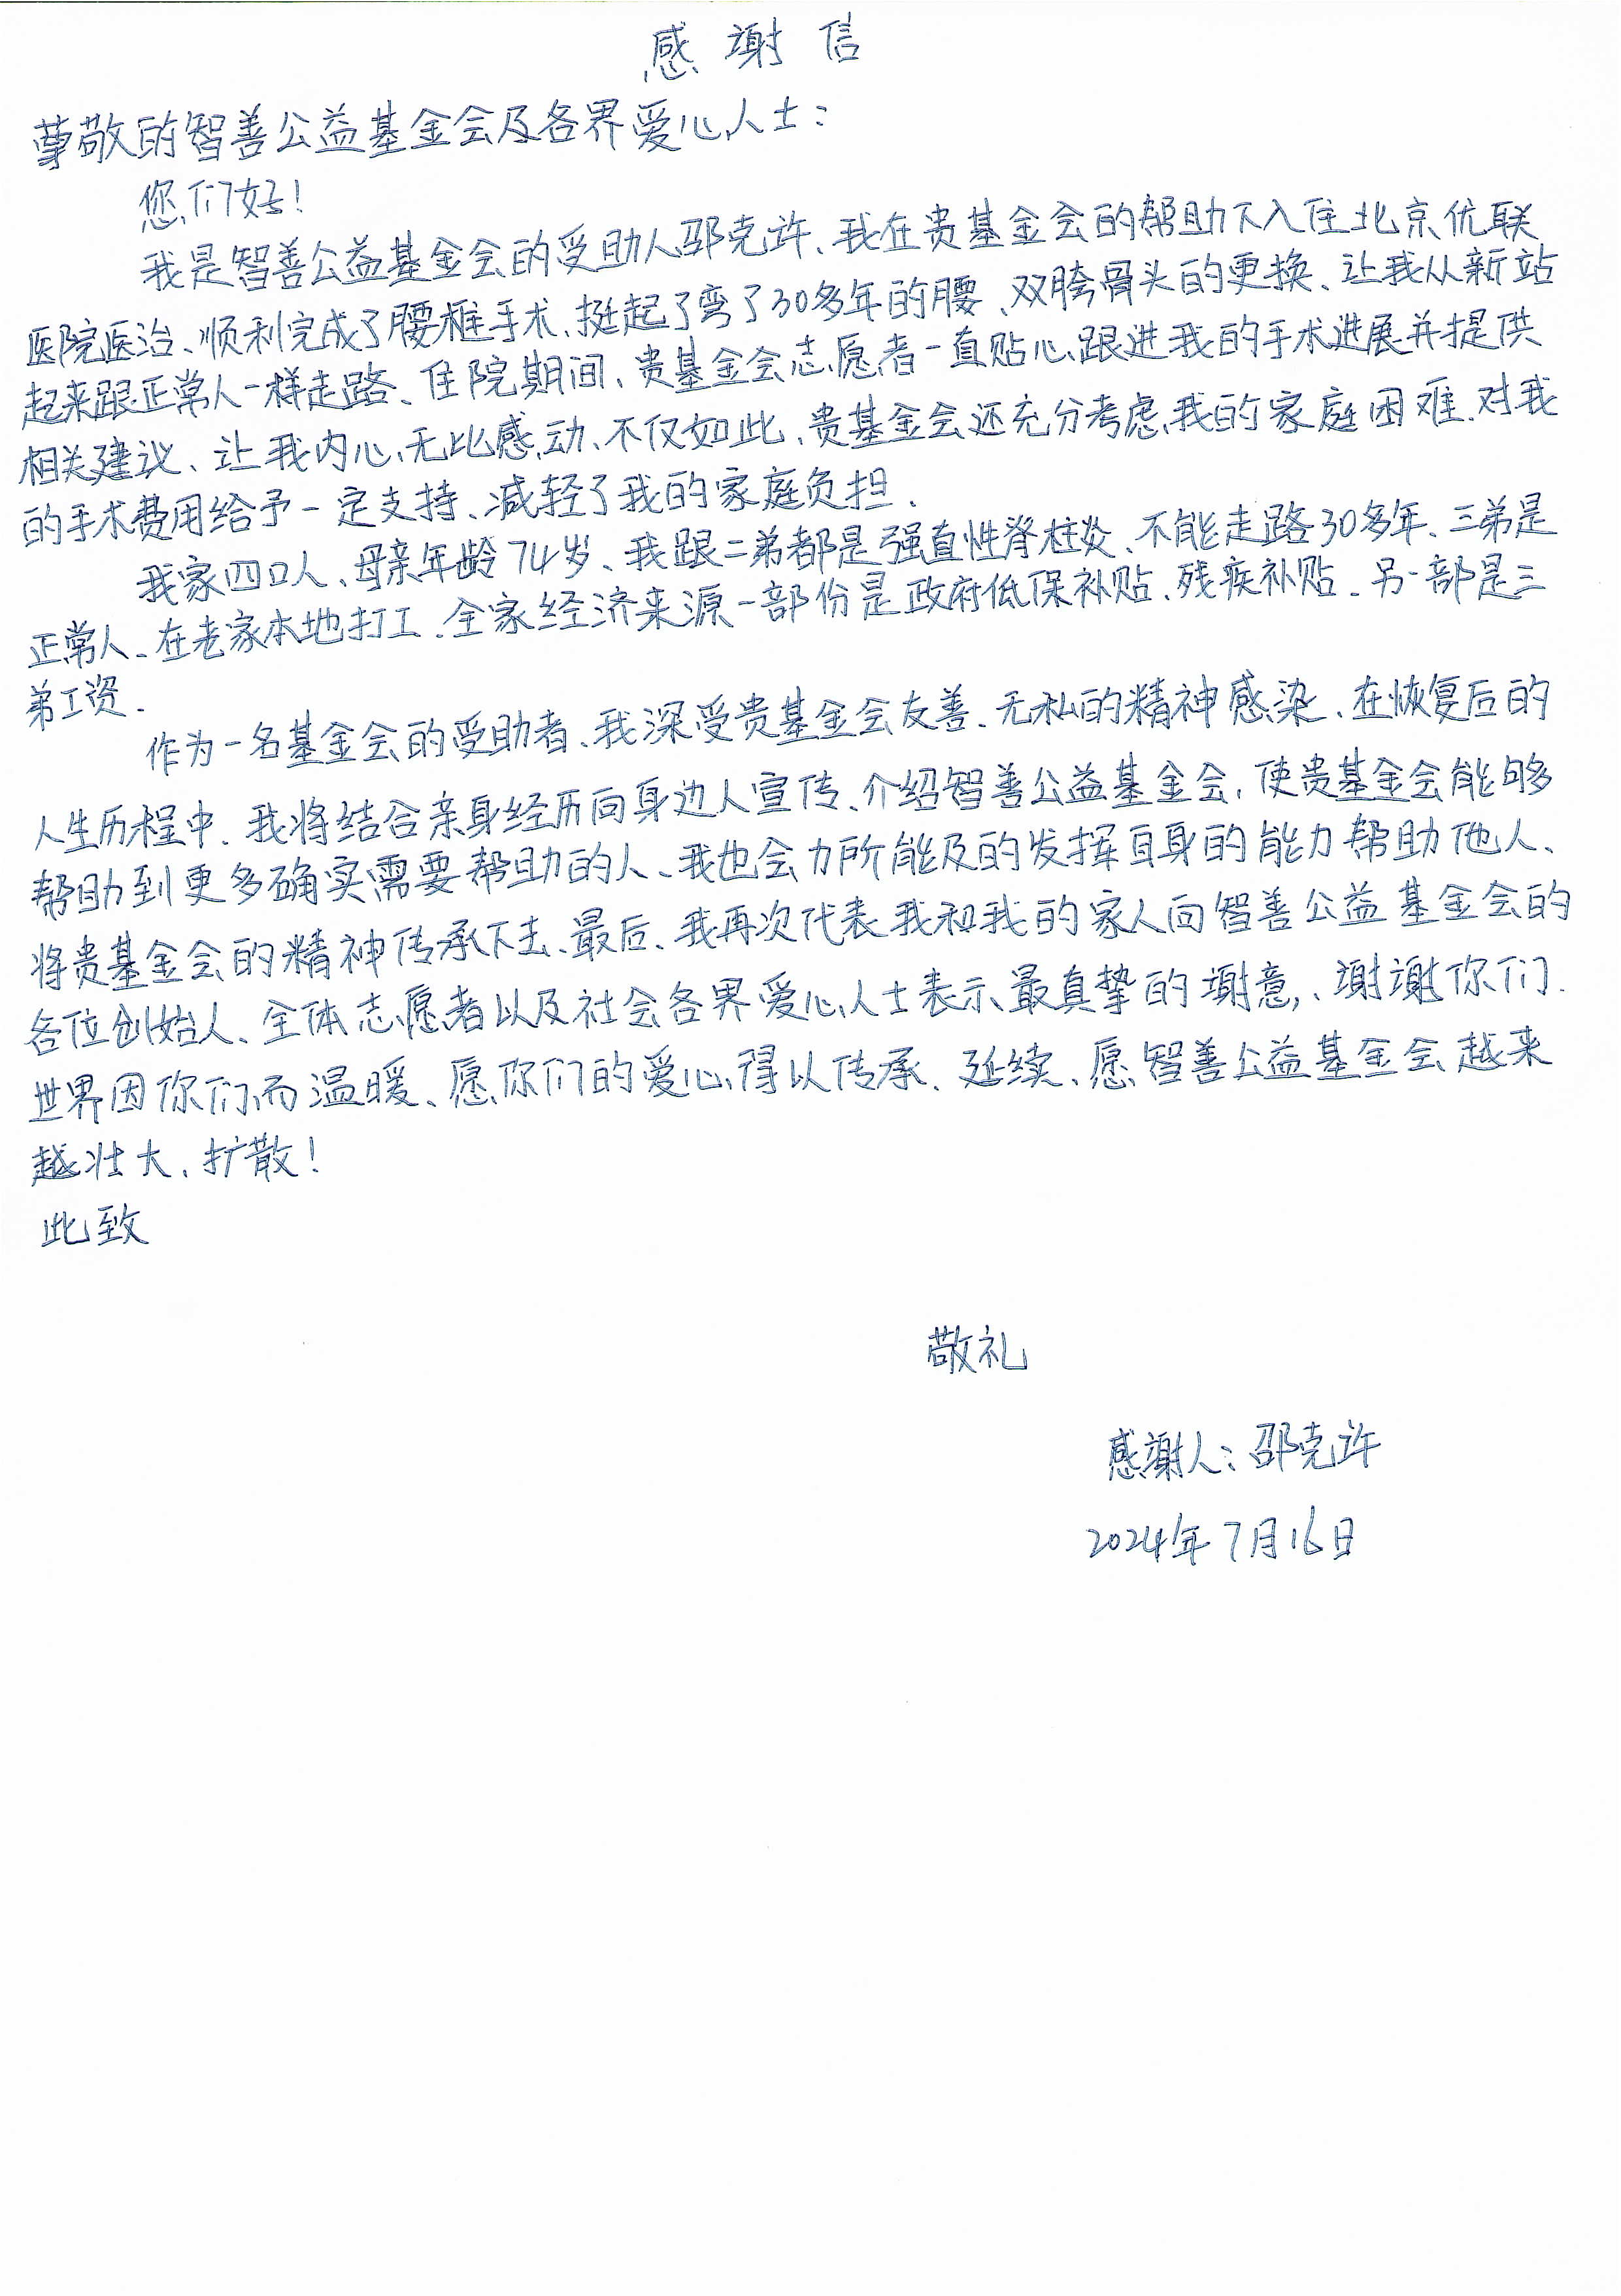 感谢信
尊敬的智善公益基金会及各界爱心人士：
您们好！
我是智善公益基金会的受助人邵克许、我在贵基金会的帮助下入住北京优联
医院医治、顺利完成了腰椎手术、挺起了弯了30多年的腰、双胯骨头的更换、让我从新站
起来跟正常人一样走路、住院期间、贵基金会志愿者一直贴心跟进我的手术进展并提供
相关建议、让我内心无比感动、不仅如此、贵基金会还充分考虑我的家庭困难.对我
的手术费用给予一定支持、减轻了我的家庭负担.
我家四口人、母亲年龄74岁、我跟二弟都是强直性脊柱炎、不能走路30多年、三弟是
正常人、在老家本地打工.全家经济来源一部份是政府低保补贴、残疾补贴.另一部是三
弟工资.
作为一名基金会的受助者、我深受贵基金会友善、无私的精神感染、在恢复后的
人生历程中、我将结合亲身经历向身边人宣传、介绍智善公益基金会，使贵基金会能够
帮助到更多确实需要帮助的人、我也会力所能及的发挥自身的能力帮助他人、
将贵基金会的精神传承下去、最后、我再次代表我和我的家人向智善公益基金会的
各位创始人、全体志愿者以及社会各界爱心人士表示最真挚的谢意，、谢谢你们.
世界因你们而温暖、愿你们的爱心得以传承、延续、愿智善公益基金会越来
越壮大、扩散！
此致
敬礼
感谢人：邵克许
2024年7月16日